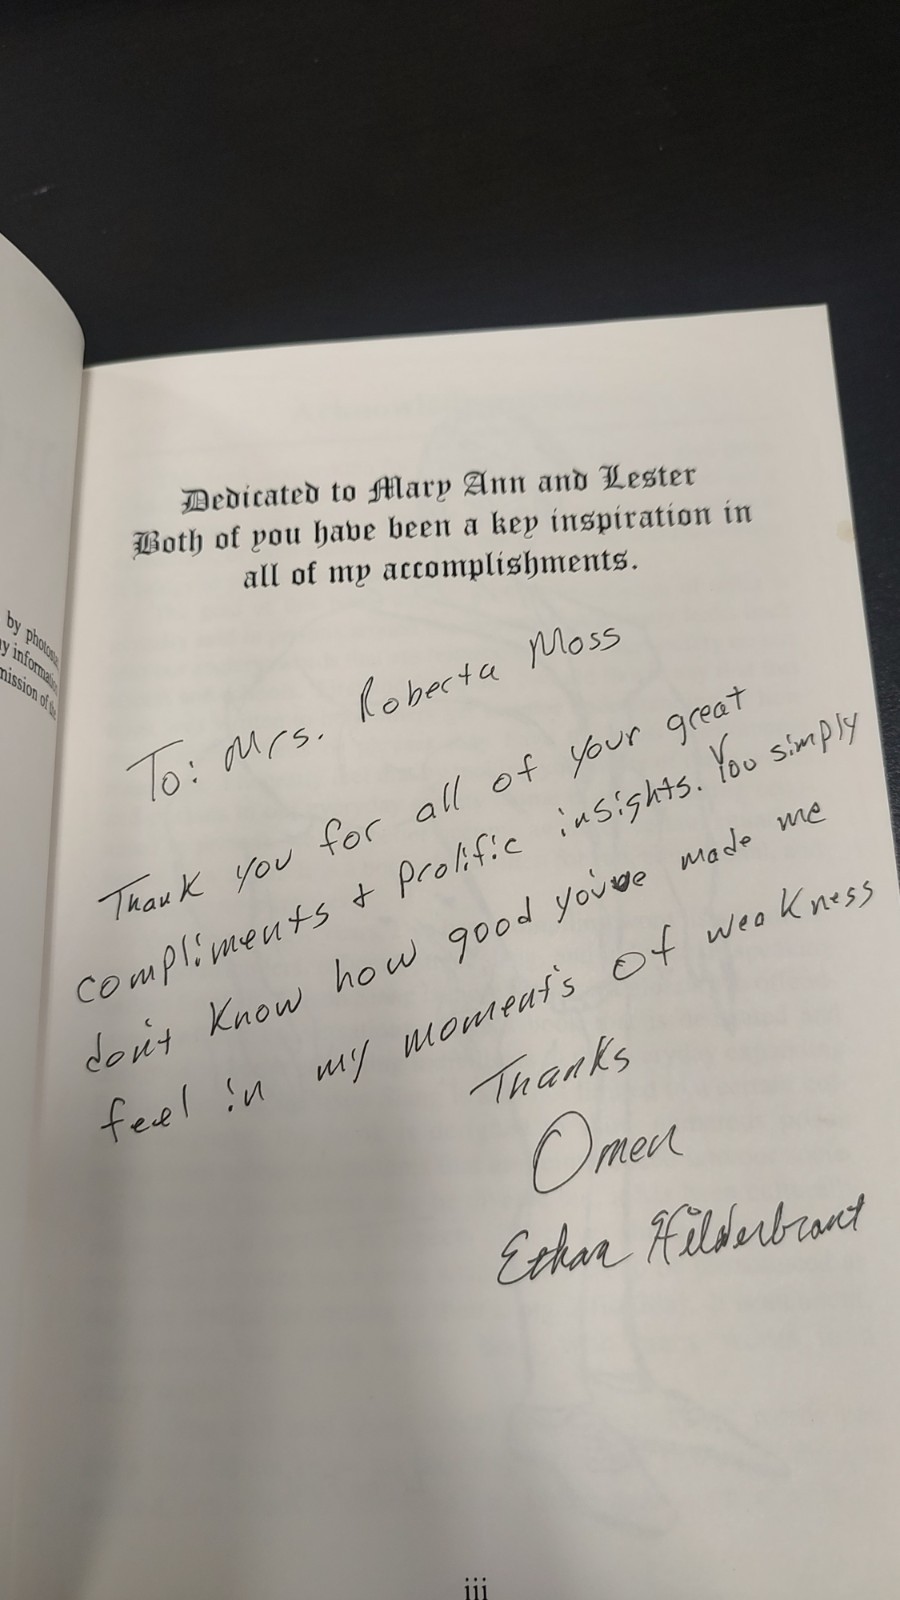 by photosta
y information
mission of the
Dedicated to Mary Ann and Lester
Both of you have been a key inspiration in
all of my accomplishments.
To: Mrs. Roberta Moss
Thank you for all of your great
compliments + prolific insights. You simply
don't know how good you've made me
feel in my moments of weakness
Thanks
Omen
Ethan Hilderbrant
iii